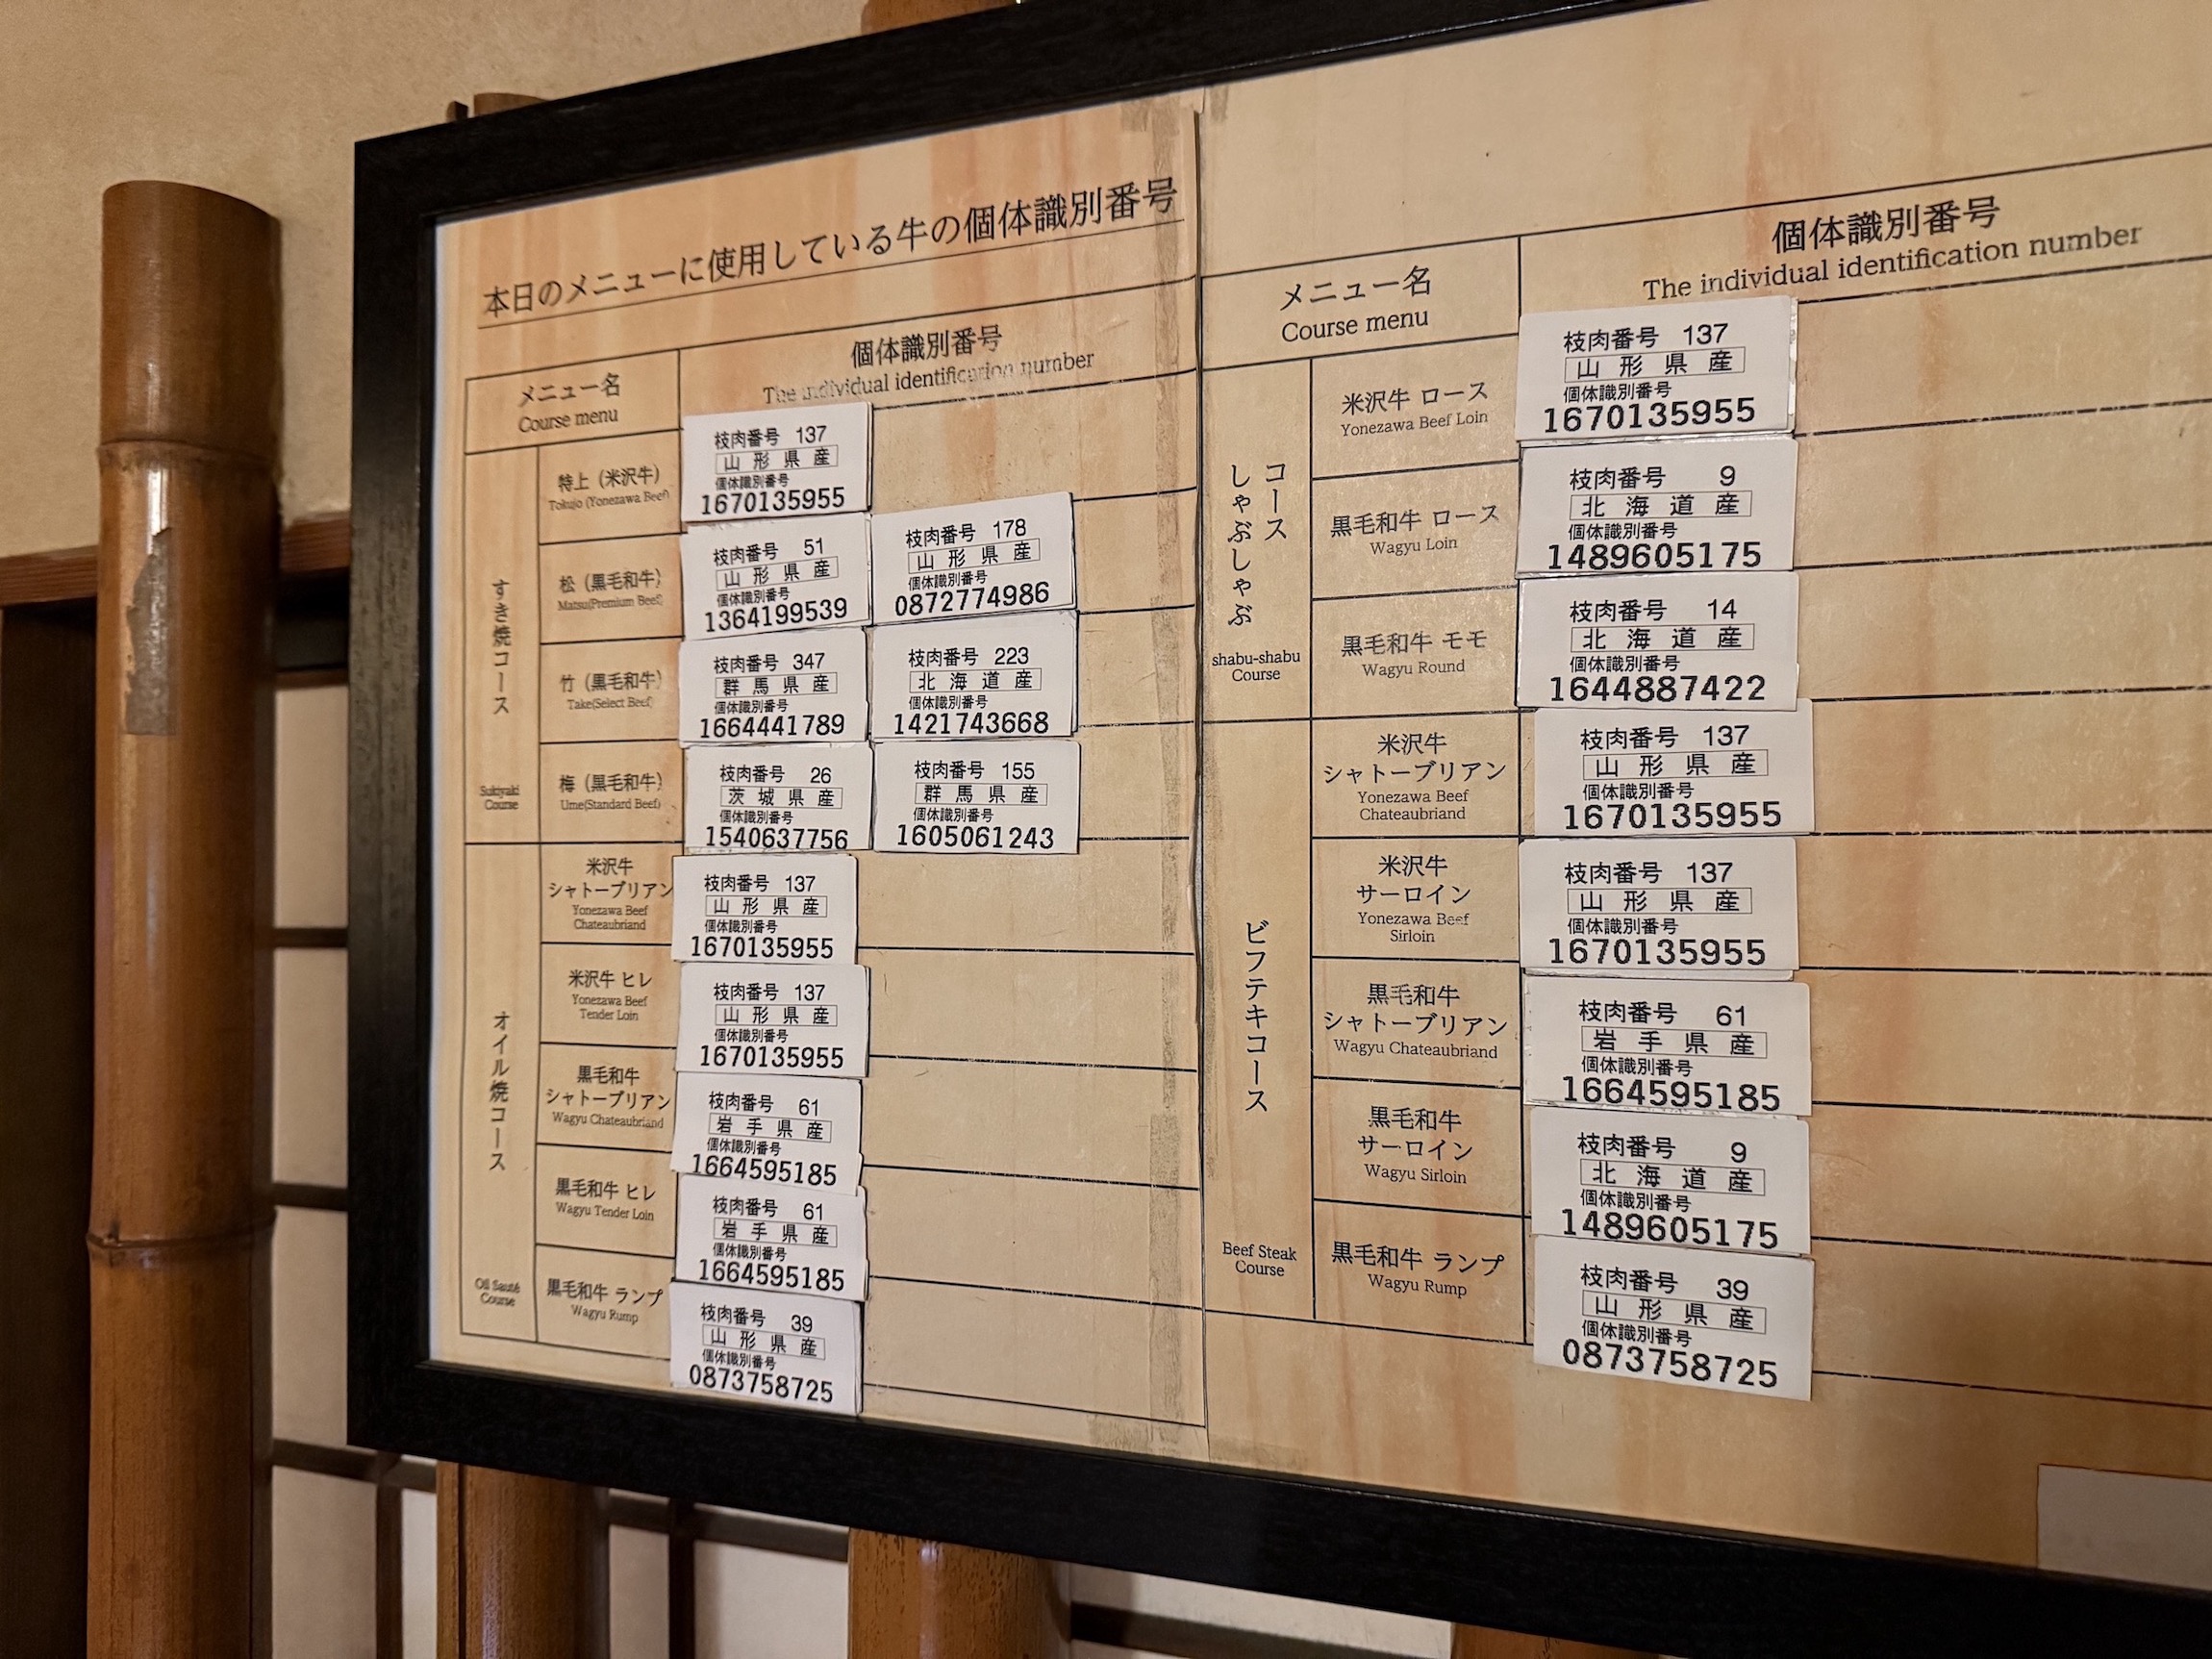 本日のメニューに使用している牛の個体識別番号
メニュー名
Course menu
個体識別番号
The individual identification number
すき焼コース
Sukiyaki
Course
特上（米沢牛）
Tokujo (Yonezawa Beef)
枝肉番号 137
山形県産
個体識別番号
1670135955
松（黒毛和牛）
Matsu(Premium Beef)
枝肉番号 51
山形県産
個体識別番号
1364199539
枝肉番号 178
山形県産
個体識別番号
0872774986
竹（黒毛和牛）
Take(Select Beef)
枝肉番号 347
群馬県産
個体識別番号
1664441789
枝肉番号 223
北海道産
個体識別番号
1421743668
梅（黒毛和牛）
Ume(Standard Beef)
枝肉番号 26
茨城県産
個体識別番号
1540637756
枝肉番号 155
群馬県産
個体識別番号
1605061243
オイル焼コース
Oil Sauté
Course
米沢牛
シャトーブリアン
Yonezawa Beef
Chateaubriand
枝肉番号 137
山形県産
個体識別番号
1670135955
米沢牛 ヒレ
Yonezawa Beef
Tender Loin
枝肉番号 137
山形県産
個体識別番号
1670135955
黒毛和牛
シャトーブリアン
Wagyu Chateaubriand
枝肉番号 61
岩手県産
個体識別番号
1664595185
黒毛和牛 ヒレ
Wagyu Tender Loin
枝肉番号 61
岩手県産
個体識別番号
1664595185
黒毛和牛 ランプ
Wagyu Rump
枝肉番号 39
山形県産
個体識別番号
0873758725
メニュー名
Course menu
個体識別番号
The individual identification number
コース
しゃぶしゃぶ
shabu-shabu
Course
米沢牛 ロース
Yonezawa Beef Loin
枝肉番号 137
山形県産
個体識別番号
1670135955
黒毛和牛 ロース
Wagyu Loin
枝肉番号 9
北海道産
個体識別番号
1489605175
黒毛和牛 モモ
Wagyu Round
枝肉番号 14
北海道産
個体識別番号
1644887422
ビフテキコース
Beef Steak
Course
米沢牛
シャトーブリアン
Yonezawa Beef
Chateaubriand
枝肉番号 137
山形県産
個体識別番号
1670135955
米沢牛
サーロイン
Yonezawa Beef
Sirloin
枝肉番号 137
山形県産
個体識別番号
1670135955
黒毛和牛
シャトーブリアン
Wagyu Chateaubriand
枝肉番号 61
岩手県産
個体識別番号
1664595185
黒毛和牛
サーロイン
Wagyu Sirloin
枝肉番号 9
北海道産
個体識別番号
1489605175
黒毛和牛 ランプ
Wagyu Rump
枝肉番号 39
山形県産
個体識別番号
0873758725